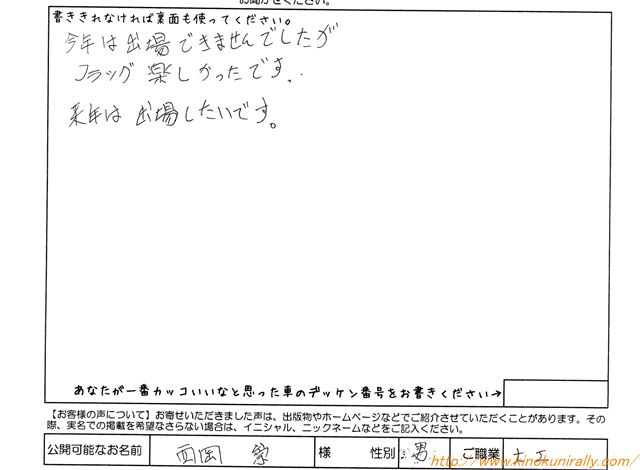 お聞かせください。
書ききれなければ裏面も使ってください。
今年は出場できませんでしたが
フラッグ楽しかったです。
来年は出場したいです。
あなたが一番カッコいいなと思った車のデッケン番号をお書きください→
【お客様の声について】お寄せいただきました声は、出版物やホームページなどでご紹介させていただくことがあります。その
際、実名での掲載を希望なさらない場合は、イニシャル、ニックネームなどをご記入ください。
公開可能なお名前 西岡 様 性別 男 ご職業 大工
http://www.kinokunirally.com/